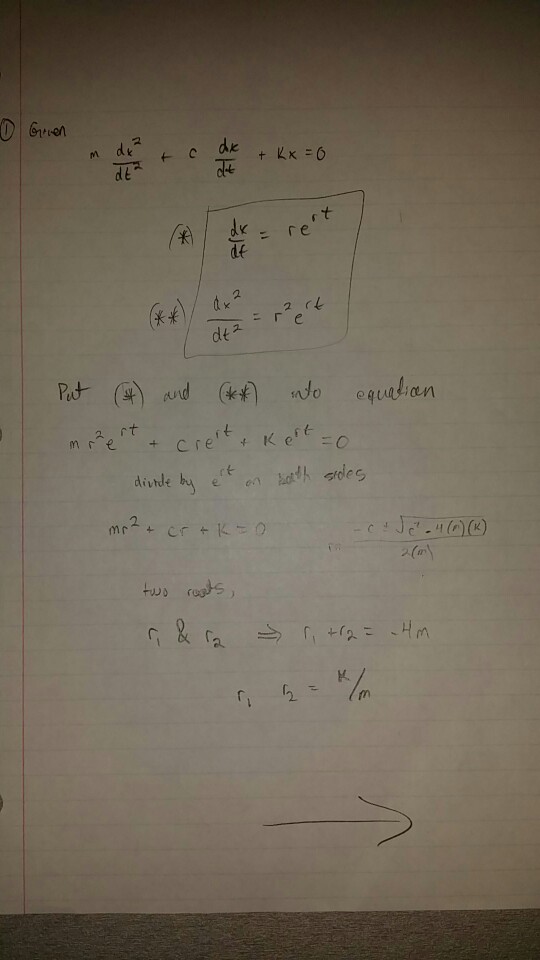 ① Given
m dx²/dt² + c dx/dt + Kx = 0
(*) dx/dt = re^rt
(**) dx²/dt² = r²e^rt
Put (*) and (**) into equation
m r²e^rt + c re^rt + K e^rt = 0
divide by e^rt on both sides
mr² + cr + K = 0 r= -c ± √(c² - 4(m)(K)) / 2(m)
two roots,
r₁ & r₂ ⇒ r₁ + r₂ = -4m
r₁ r₂ = K/m
→